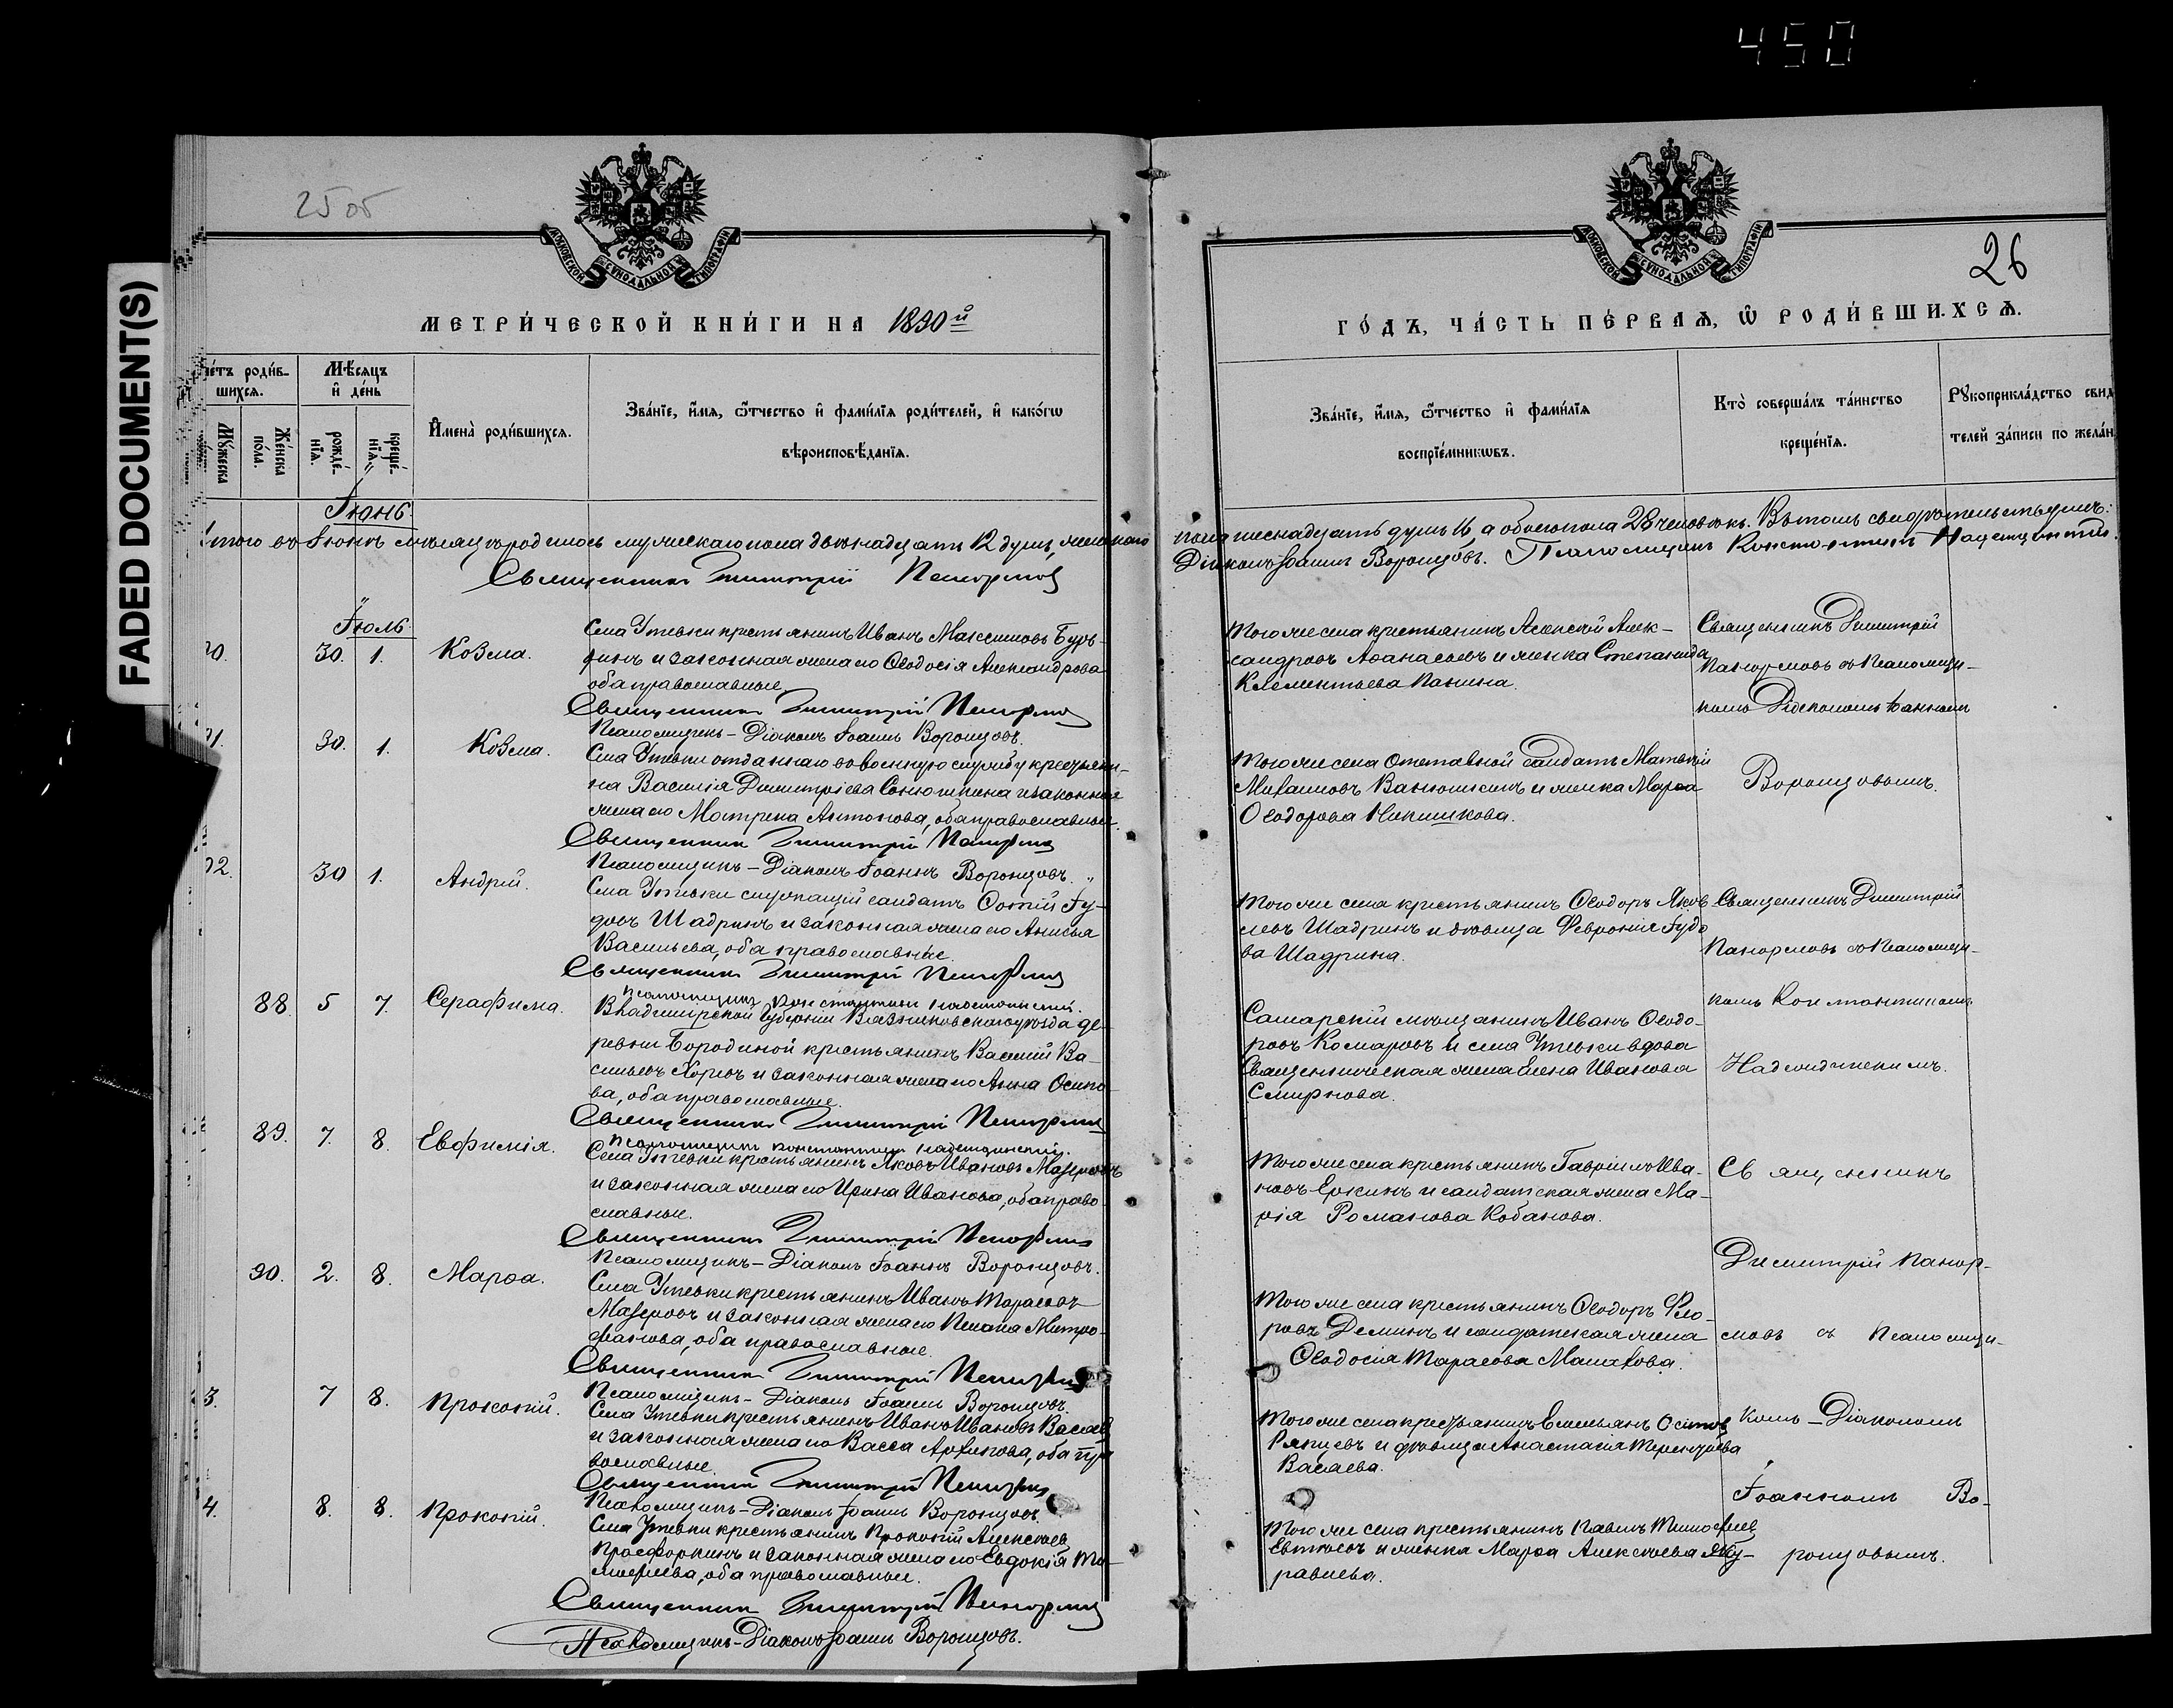 450
FADED DOCUMENT(S)
25 об
МОСКОВСКОЙ СѴНОДАЛЬНОЙ ТИПОГРАФІИ
МЕТРИ́ЧЕСКОЙ КНИ́ГИ НА 1890й
Мѣ́сяцъ
и҆ де́нь
шихсѧ.
Му́жеска
Же́нска
по́ла.
рожде́-
нїѧ.
креще́-
нїѧ.
И҆мена̀ роди́вшихсѧ.
Зва́нїе, и҆́мѧ, ѻ҆́тчество и҆ фами́лїѧ роди́телей, и҆ како́гѡ
вѣроисповѣ́данїѧ.
Іюнь.
Итого въ Іюнѣ мѣсяцѣ родилось мужескаго пола двѣнадцать 12 душъ, женскаго
Священникъ Димитрій Панормовъ
Іюль
30. 1. Козма.
Села Утевки крестьянинъ Иванъ Максимовъ Бур-
и законная жена его Ѳеодосія Александрова
оба православные.
Священникъ Димитрій Панормовъ
Псаломщикъ-Діаконъ Іоаннъ Воронцовъ.
91. 30. 1. Козма.
Села Утевки отданнаго въ военную службу крестьяни-
на Василія Димитріева и законная
жена его Матрена Антонова, оба православные.
Священникъ Димитрій Панормовъ
Псаломщикъ-Діаконъ Іоаннъ Воронцовъ.
92. 30 1. Андрей.
Села Утевки служащій солдатъ Фотій Іу-
довъ Шадринъ и законная жена его Анисья
Васильева, оба православные.
Священникъ Димитрій Панормовъ
Псаломщикъ Константинъ Надеждинскій.
88. 5 7. Серафима.
Владимірской губерніи Вязниковскаго уѣзда де-
ревни Бородиной крестьянинъ Василій Ва-
сильевъ и законная жена его Анна Осипо-
ва, оба православные.
Священникъ Димитрій Панормовъ
Псаломщикъ Константинъ Надеждинскій.
89. 7. 8. Евфимія.
Села Утевки крестьянинъ Яковъ Ивановъ Мазуровъ
и законная жена его Ирина Иванова, оба право-
славные.
Священникъ Димитрій Панормовъ
Псаломщикъ-Діаконъ Іоаннъ Воронцовъ.
90. 2. 8. Марѳа.
Села Утевки крестьянинъ Иванъ Тарасовъ
Мазуровъ и законная жена его Митро-
фанова, оба православные.
Священникъ Димитрій Панормовъ
Псаломщикъ-Діаконъ Іоаннъ Воронцовъ.
3. 7 8. Прокопій.
Села Утевки крестьянинъ Иванъ Ивановъ Васаев
и законная жена его Васса Архипова, оба пра-
вославные.
Священникъ Димитрій Панормовъ
Псаломщикъ-Діаконъ Іоаннъ Воронцовъ.
4. 8. 8. Прокопій.
Села Утевки крестьянинъ Прокопій Алексѣевъ
Просфоркинъ и законная жена его Евдокія Ти-
моѳеева, оба православные.
Священникъ Димитрій Панормовъ
Псаломщикъ-Діаконъ Іоаннъ Воронцовъ.
МОСКОВСКОЙ СѴНОДАЛЬНОЙ ТИПОГРАФІИ
26
ГО́ДЪ, ЧА́СТЬ ПЕ́РВАЯ, Ѡ҆ РОДИ́ВШИХСѦ.
Зва́нїе, и҆́мѧ, ѻ҆́тчество и҆ фами́лїѧ
воспрїе́мникѡвъ.
Кто̀ соверша́лъ та́инство
креще́нїѧ.
Рꙋкоприкла́дство свид
телей за́писи по жела́н
пола шеснадцать душъ 16, а обоего пола 28 человѣкъ. Въ томъ свидѣтельствуемъ:
Діаконъ Іоаннъ Воронцовъ. Псаломщикъ Константинъ Надеждинскій.
Того же села крестьянинъ Алексѣй Алек-
сандровъ Аѳанасьевъ и женка Степанида
Клементьева Панина.
Священникъ Димитрій
Панормовъ съ Псаломщи-
комъ Діакономъ Іоанномъ
Воронцовымъ.
Того же села отставной солдатъ Матвѣй
Михаиловъ Ванюшкинъ и женка Марѳа
Ѳеодорова Никишкова.
Того же села крестьянинъ Ѳеодоръ Яков-
левъ Шадринъ и дѣвица Февронія Іудо-
ва Шадрина.
Священникъ Димитрій
Панормовъ съ Псаломщи-
комъ Константиномъ
Надеждинскимъ.
Самарскій мѣщанинъ Иванъ Ѳеодо-
ровъ Комаровъ и села Утевки вдова
Священническая жена Елена Иванова
Смирнова.
Того же села крестьянинъ Гавріилъ Ива-
новъ Еркинъ и солдатская жена Ма-
рія Романова Кабанова.
Священникъ
Димитрій Панор-
мовъ съ Псаломщи-
комъ-Діакономъ
Іоанномъ Во-
ронцовымъ.
Того же села крестьянинъ Ѳеодоръ Фло-
ровъ Деминъ и солдатская жена
Ѳеодосія Тарасова Малахова.
Того же села крестьянинъ Емельянъ Осипов
и дѣвица Анастасія Терентьева
Васаева.
Того же села крестьянинъ Павелъ Тимоѳеев
Евтѣевъ и женка Марѳа Алексѣева Жу-
равлева.